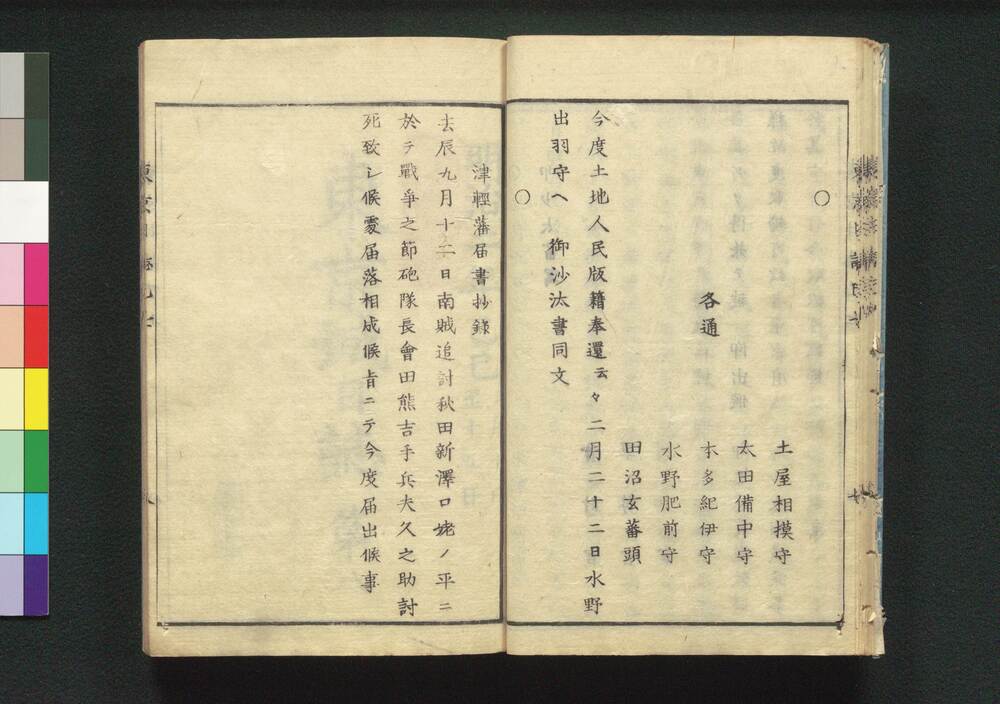 ○
土屋相摸守
太田備中守
各通
本多紀伊守
水野肥前守
田沼玄蕃頭
今度土地人民版籍奉還云々二月二十二日水野
出羽守へ 御沙汰書同文
○
津輕藩届書抄錄
去辰九月十二日南賊追討秋田新澤口姥ノ平ニ
於テ戰爭之節砲隊長會田熊吉手兵夫久之助討
死致シ候處届落相成候旨ニテ今度届出候事